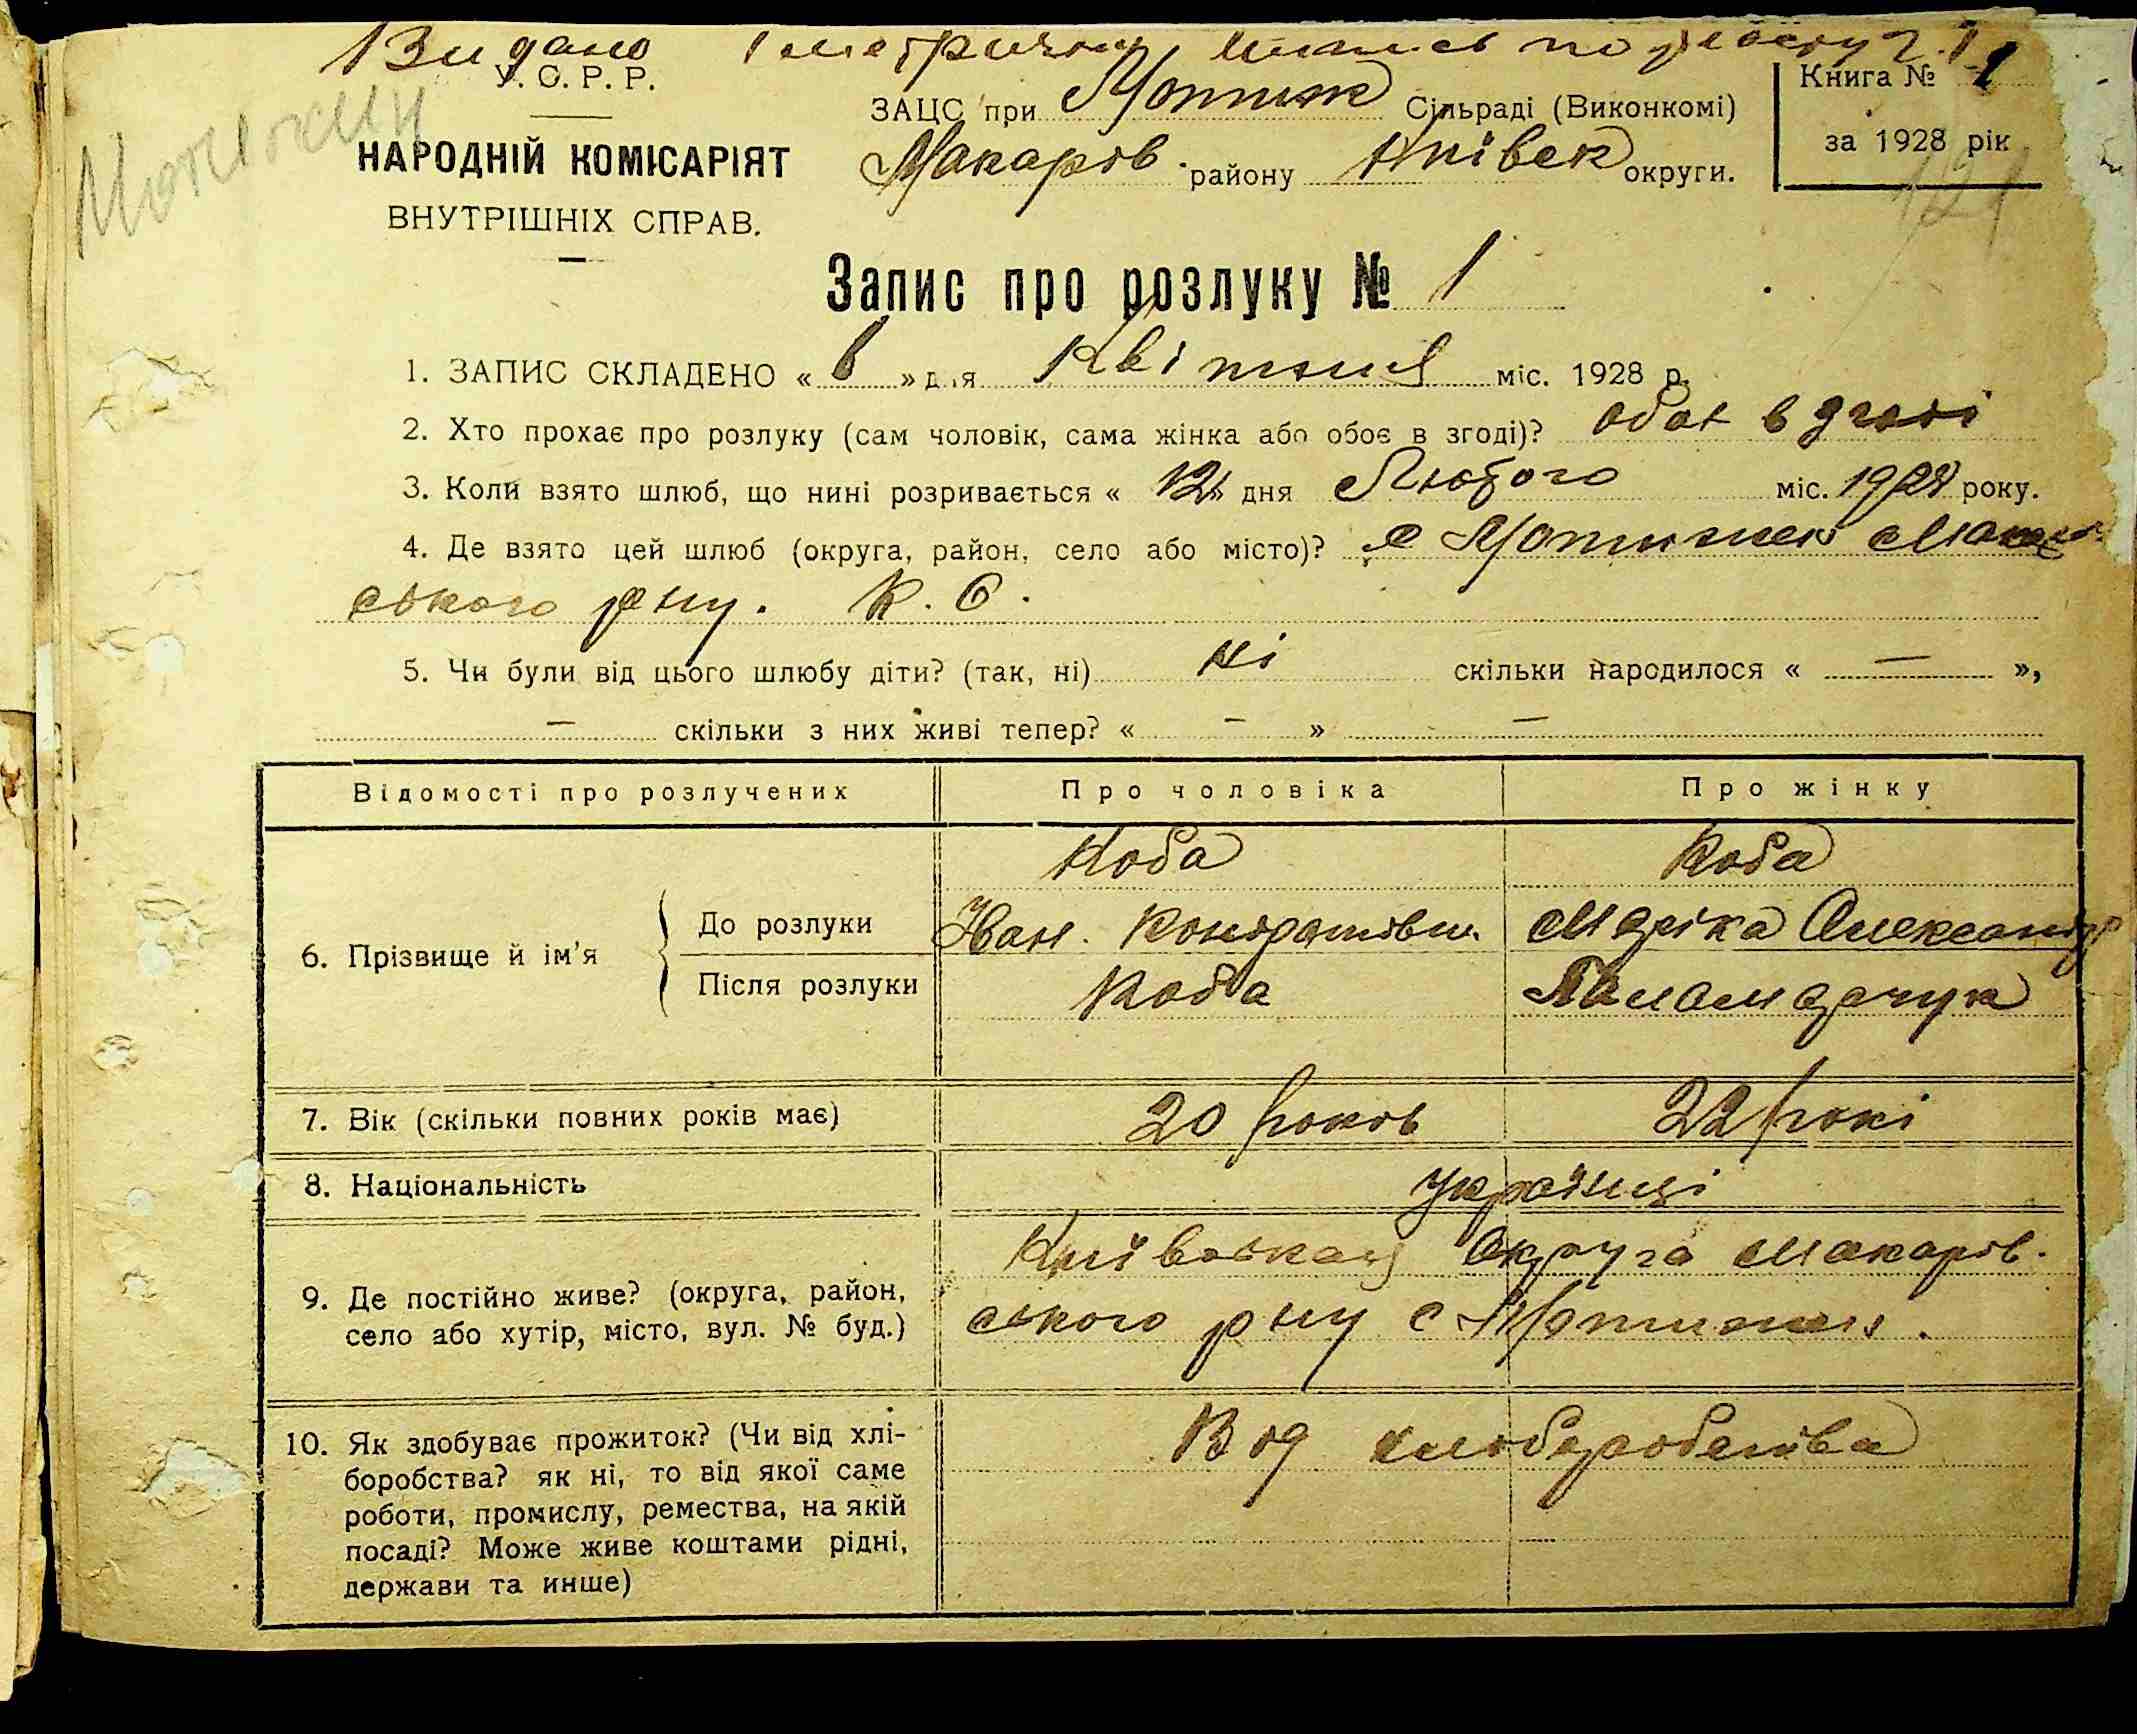 Видано
У. С. Р. Р.
Мотижин
НАРОДНІЙ КОМІСАРІЯТ
ВНУТРІШНІХ СПРАВ.
ЗАЦС при Мотиж Сільраді (Виконкомі)
Макарів. району Київськ округи.
Книга № 1
за 1928 рік
121
Запис про розлуку № 1
1. ЗАПИС СКЛАДЕНО « 6 » дня Квітня міс. 1928 р.
2. Хто прохає про розлуку (сам чоловік, сама жінка або обоє в згоді)? обоє в згоді
3. Коли взято шлюб, що нині розривається « 12 » дня Лютого міс. 1928 року.
4. Де взято цей шлюб (округа, район, село або місто)? с Мотижин Мака
ського рну. К. О.
5. Чи були від цього шлюбу діти? (так, ні) ні скільки народилося « — »,
— скільки з них живі тепер? « — » —
Відомості про розлучених Про чоловіка Про жінку
Коба Коба
6. Прізвище й ім'я До розлуки Іван. Кондратович. Маріка Олександр
Після розлуки Коба Паламарчук
7. Вік (скільки повних років має) 20 років 22 рокі
8. Національність Українці
9. Де постійно живе? (округа, район, село або хутір, місто, вул. № буд.)
Київськая Округа Макарів.
ського рну с Мотижин.
10. Як здобуває прожиток? (Чи від хлі-
боробства? як ні, то від якої саме
роботи, промислу, ремества, на якій
посаді? Може живе коштами рідні,
держави та инше)
Від хліборобства